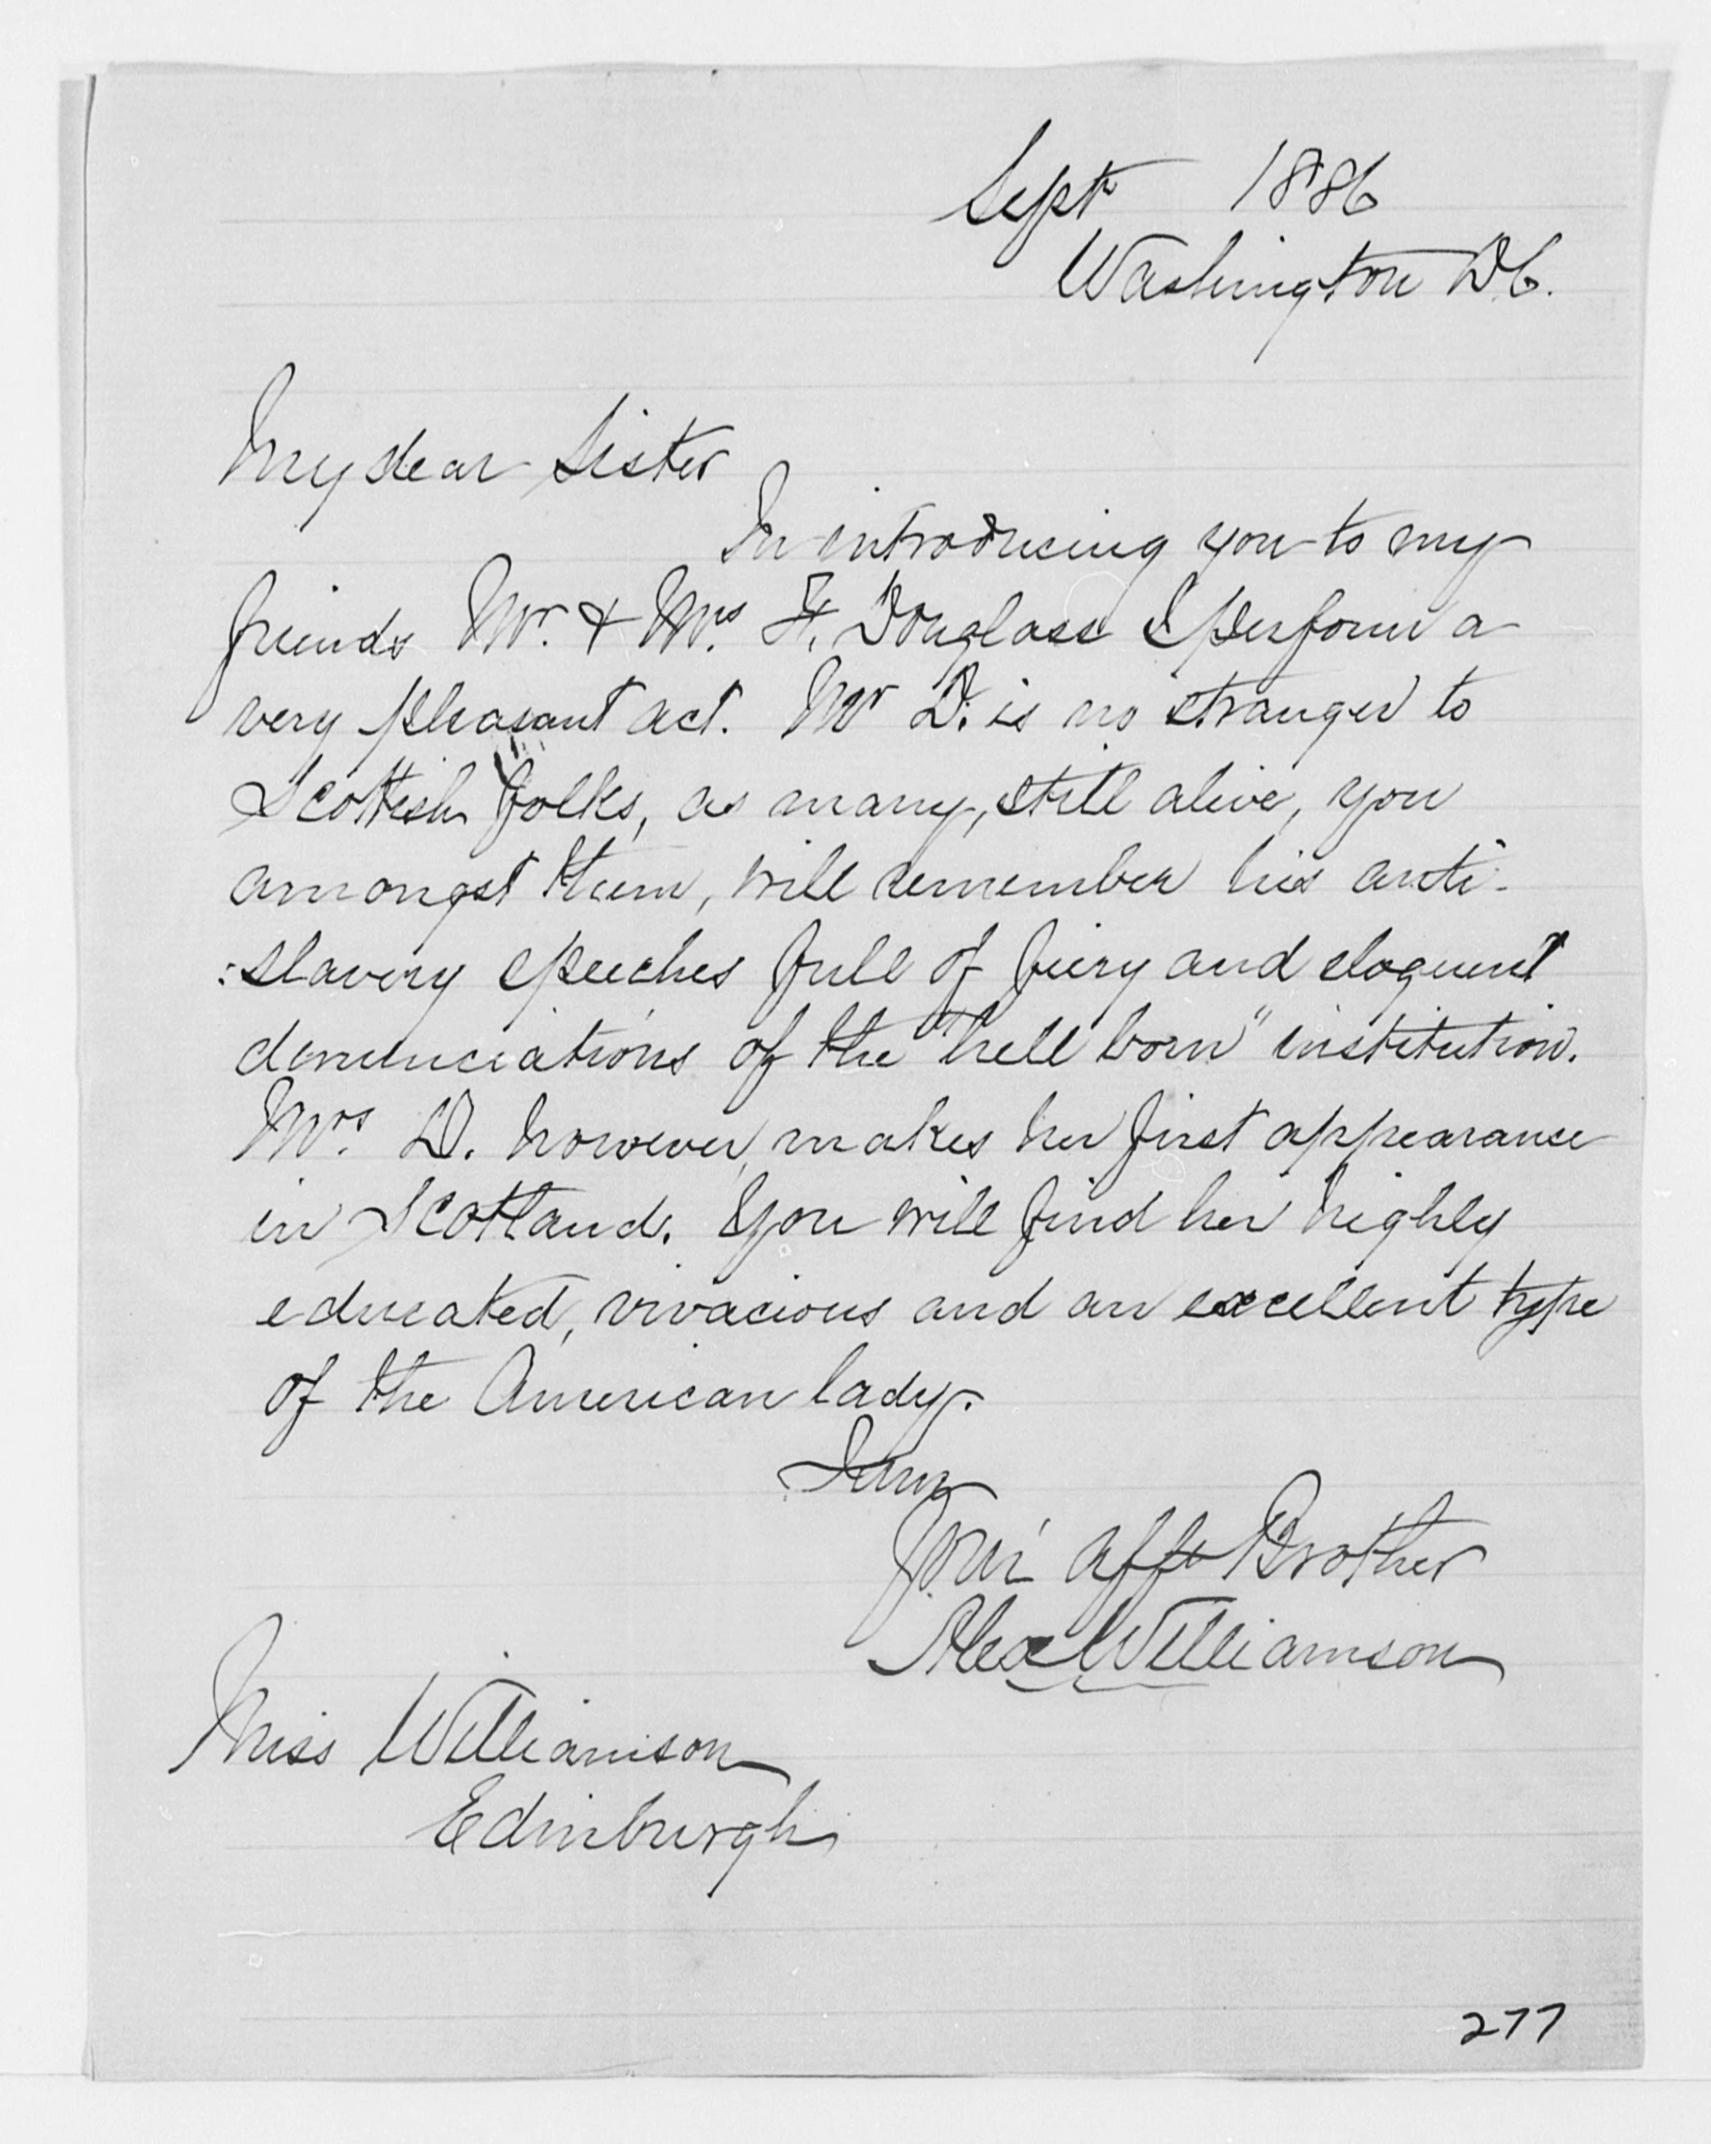 Sept 1886
Washington D.C.
My dear Sister
In introducing you to my
friends Mr. & Mrs. F. Douglass I perform a
very pleasant act. Mr D. is no stranger to
Scottish folks, as many, still alive, you
amongst them, will remember his anti-
:slavery speeches full of fiery and eloquent
denunciations of the "hell born" institution.
Mrs. D. however, makes her first appearance
in Scotland. You will find her highly
educated, vivacious and an excellent type
of the American lady.
I am
Your affte Brother
Alex Williamson
Miss Williamson
Edinburgh
277